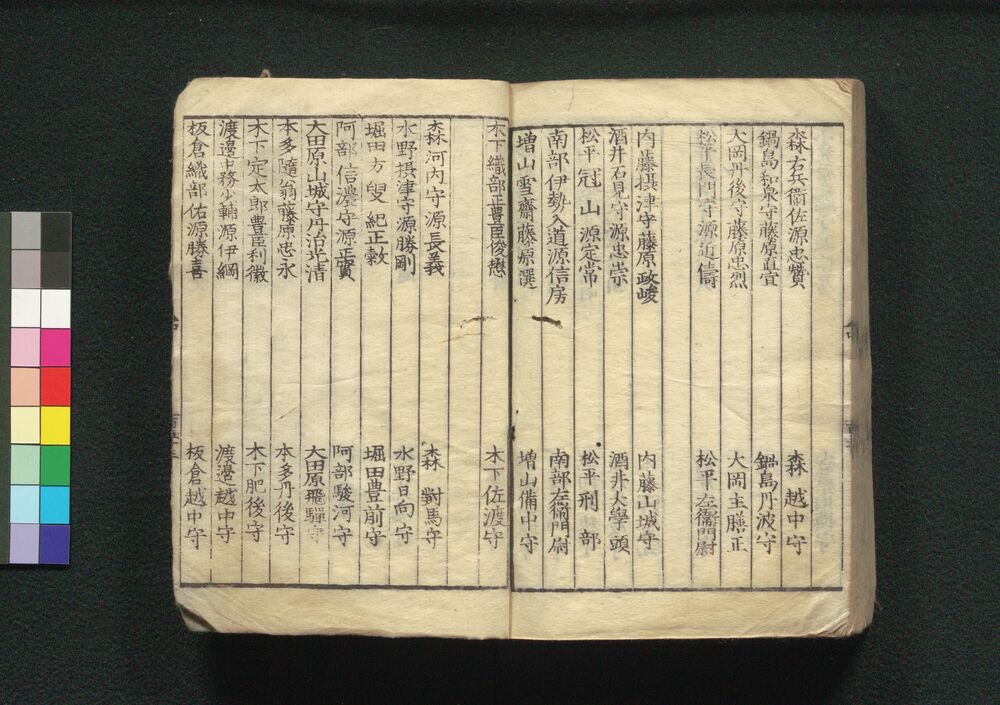 森右兵衛佐源忠贊　森越中守
鍋島和泉守藤原直宜　鍋島丹波守
大岡丹後守藤原忠烈　大岡主膳正
松平長門守源近儔　松平左衞門尉
内藤摂津守藤原政峻　内藤山城守
酒井石見守源忠崇　酒井大學頭
松平冠山源定常　松平刑部
南部伊勢入道源信房　南部左衞門尉
増山雪齋藤原選　増山備中守
木下織部正豊臣俊懋　木下佐渡守
森河内守源長義　森對馬守
水野摂津守源勝剛　水野日向守
堀田方叟紀正敦　堀田豊前守
阿部信濃守源正實　阿部駿河守
大田原山城守丹治光清　大田原飛驒守
本多隨翁藤原忠永　本多丹後守
木下定太郎豊臣利徽　木下肥後守
渡邊中務少輔源伊綱　渡邉越中守
板倉織部佑源勝喜　板倉越中守